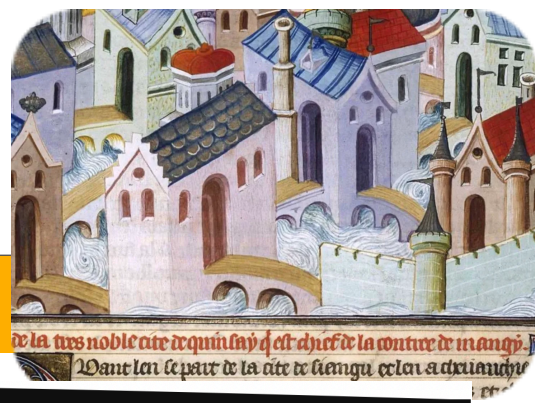 de la tres noble cite de quinsay q̃ est chief de la contree de mangy.
Vant len se part de la cite de siangu et len a cheuauchie